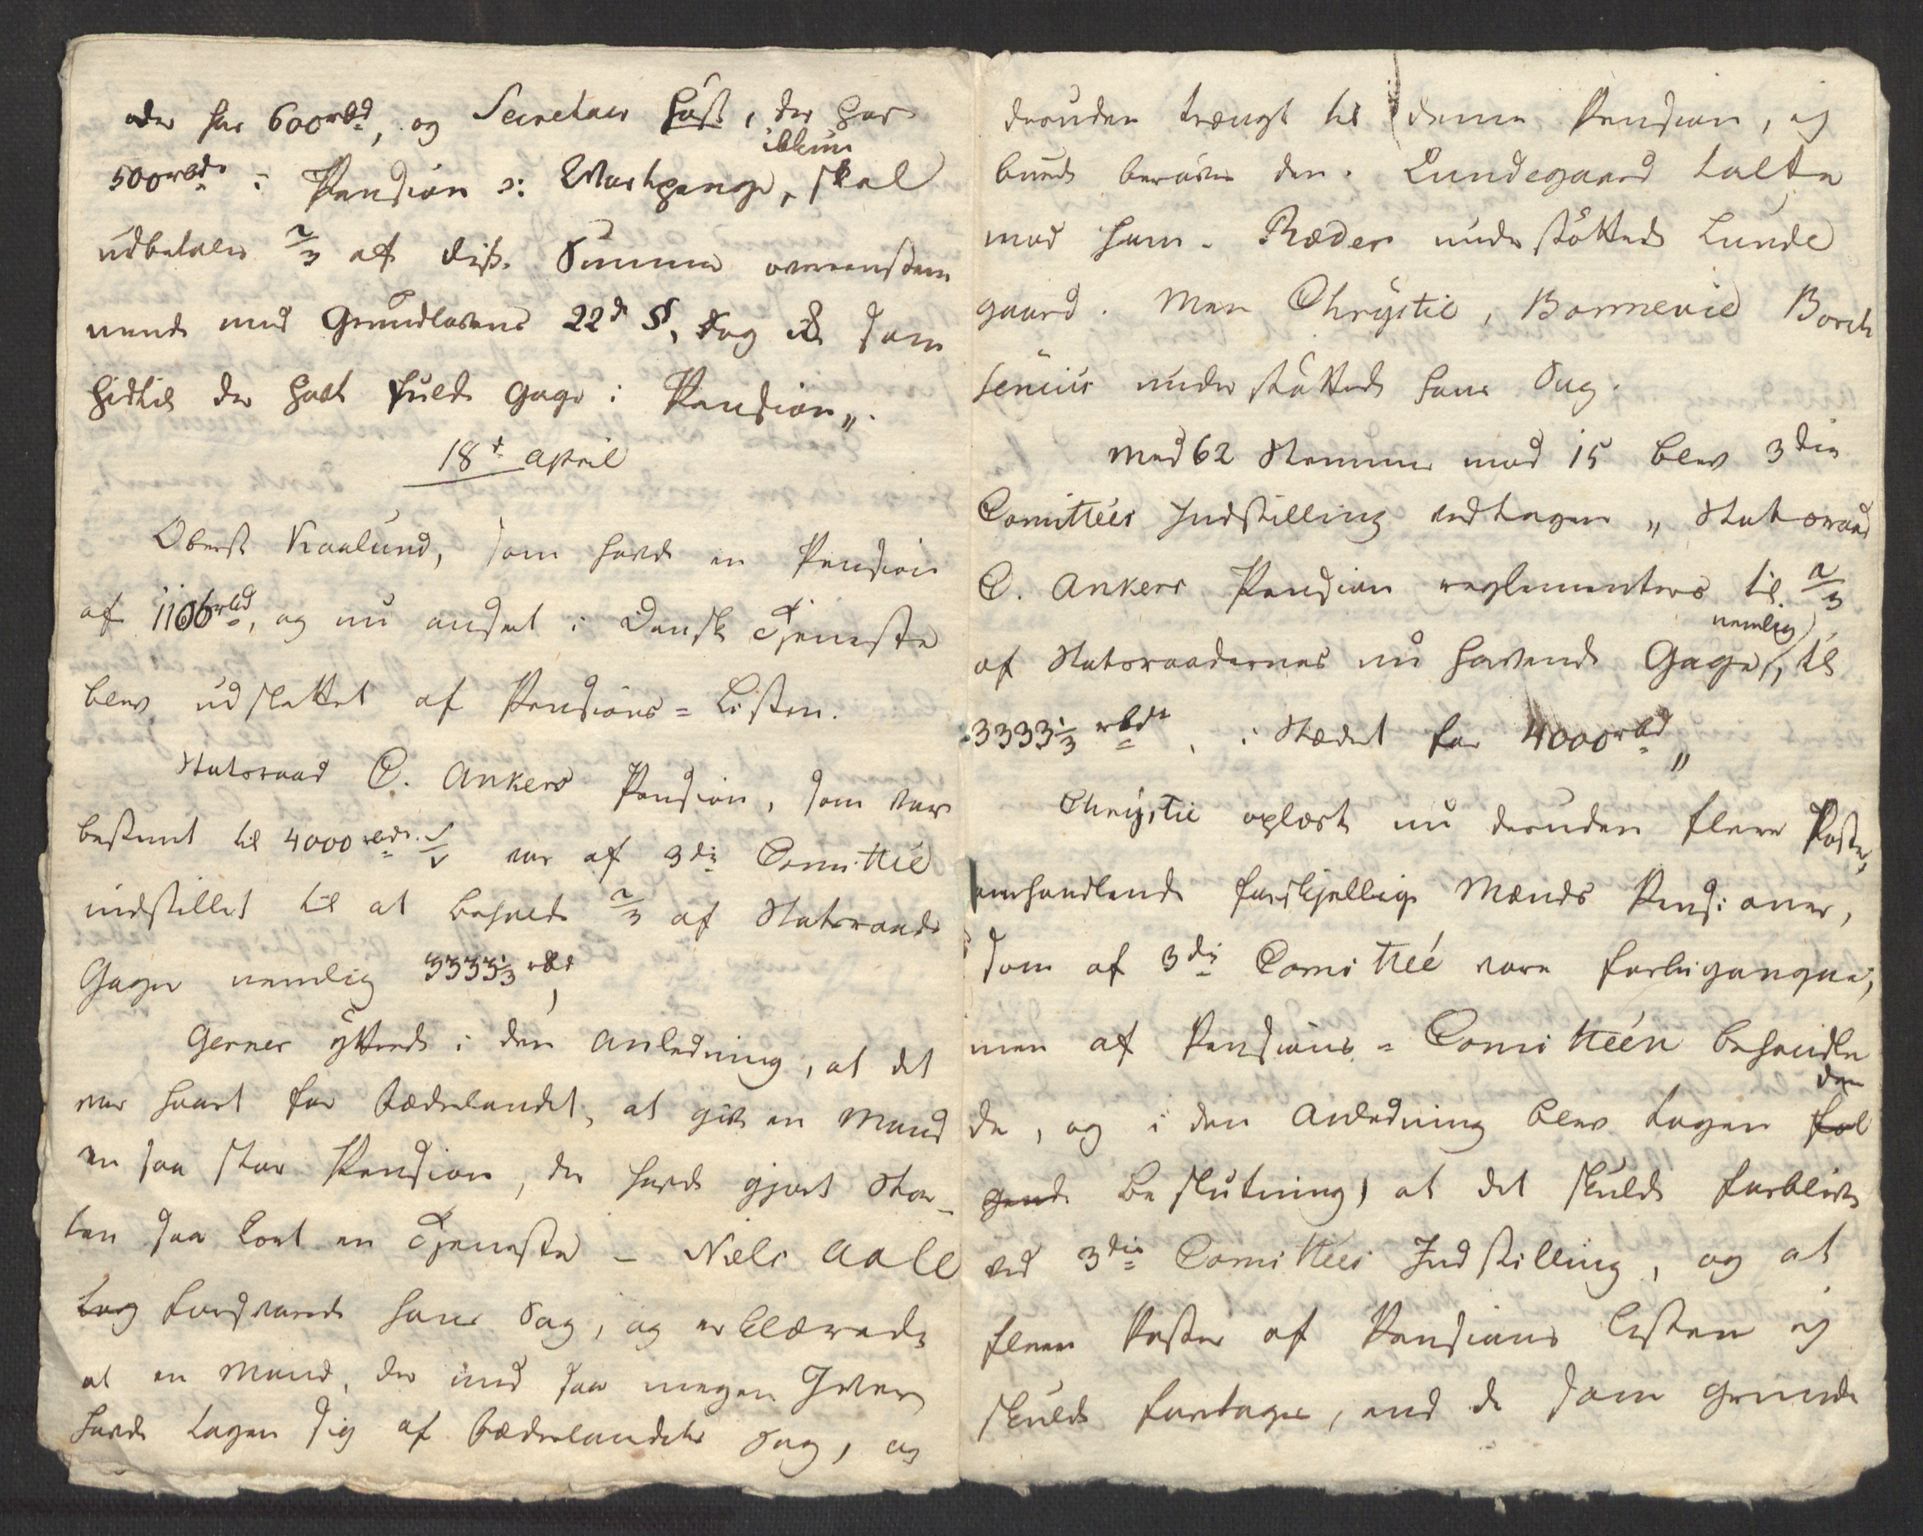 der har 600 rbd, og Secretair Høst, der har
500 rbd i Pension ɔ: Wartpenge, skal ikkun
udbetales 2/3 af disse Summer overeenstem
mende med Grundlovens 22d §, dog ei som
hidtil der havt fuld Gage i Pension„.
18d April
Oberst Kaalund, som havde en Pension
af 1106 rbd, og nu ansat i Dansk Tjeneste
blev udslettet af Pensions=Listen.
Statsraad C. Ankers Pension, som var
bestemt til 4000 rbd var af 3die Comittee
indstillet til at beholde 2/3 af Statsraads
Gager nemlig 3333 1/3 rbd,
Gerner yttrede i den Anledning, at det
var haart for Fædrelandet, at give en Mand
en saa stor Pension, der havde gjort Sta-
ten saa kort en Tjeneste – Niels Aall
tog forsvarede hans Sag, og erklærede
at en Mand, der med saa megen Iver
havde tagen sig af Fædrelandets Sag, og
desuden trængt til denne Pension, ej
burde berøves den. Lundegaard talte
mod ham. Ræder understøttede Lunde
gaard. Men Chrystie, Bonnevie Borch
senius understøttede hans Sag.
Med 62 Stemmer mod 15 blev 3die
Comittees Indstilling vedtagen „Statsraad
C. Ankers Pension reglementeres til 2/3
af Statsraadernes nu havende Gage, nemlig til
3333 1/3 rbd, i Stædet for 4000 rbd„
Chrystie oplæste nu desuden flere Poster,
omhandlende forskjellige Mænds Pensioner,
som af 3die Comittee vare forbigangne,
men af Pensions=Comitteen behandle
de, og i den Anledning blev tagen føl den
gende Beslutning, at det skulde forblive
ved 3die Comittees Indstilling, og at
flere Poster af Pensions Listen ej
skulde foretages, end de som grunde